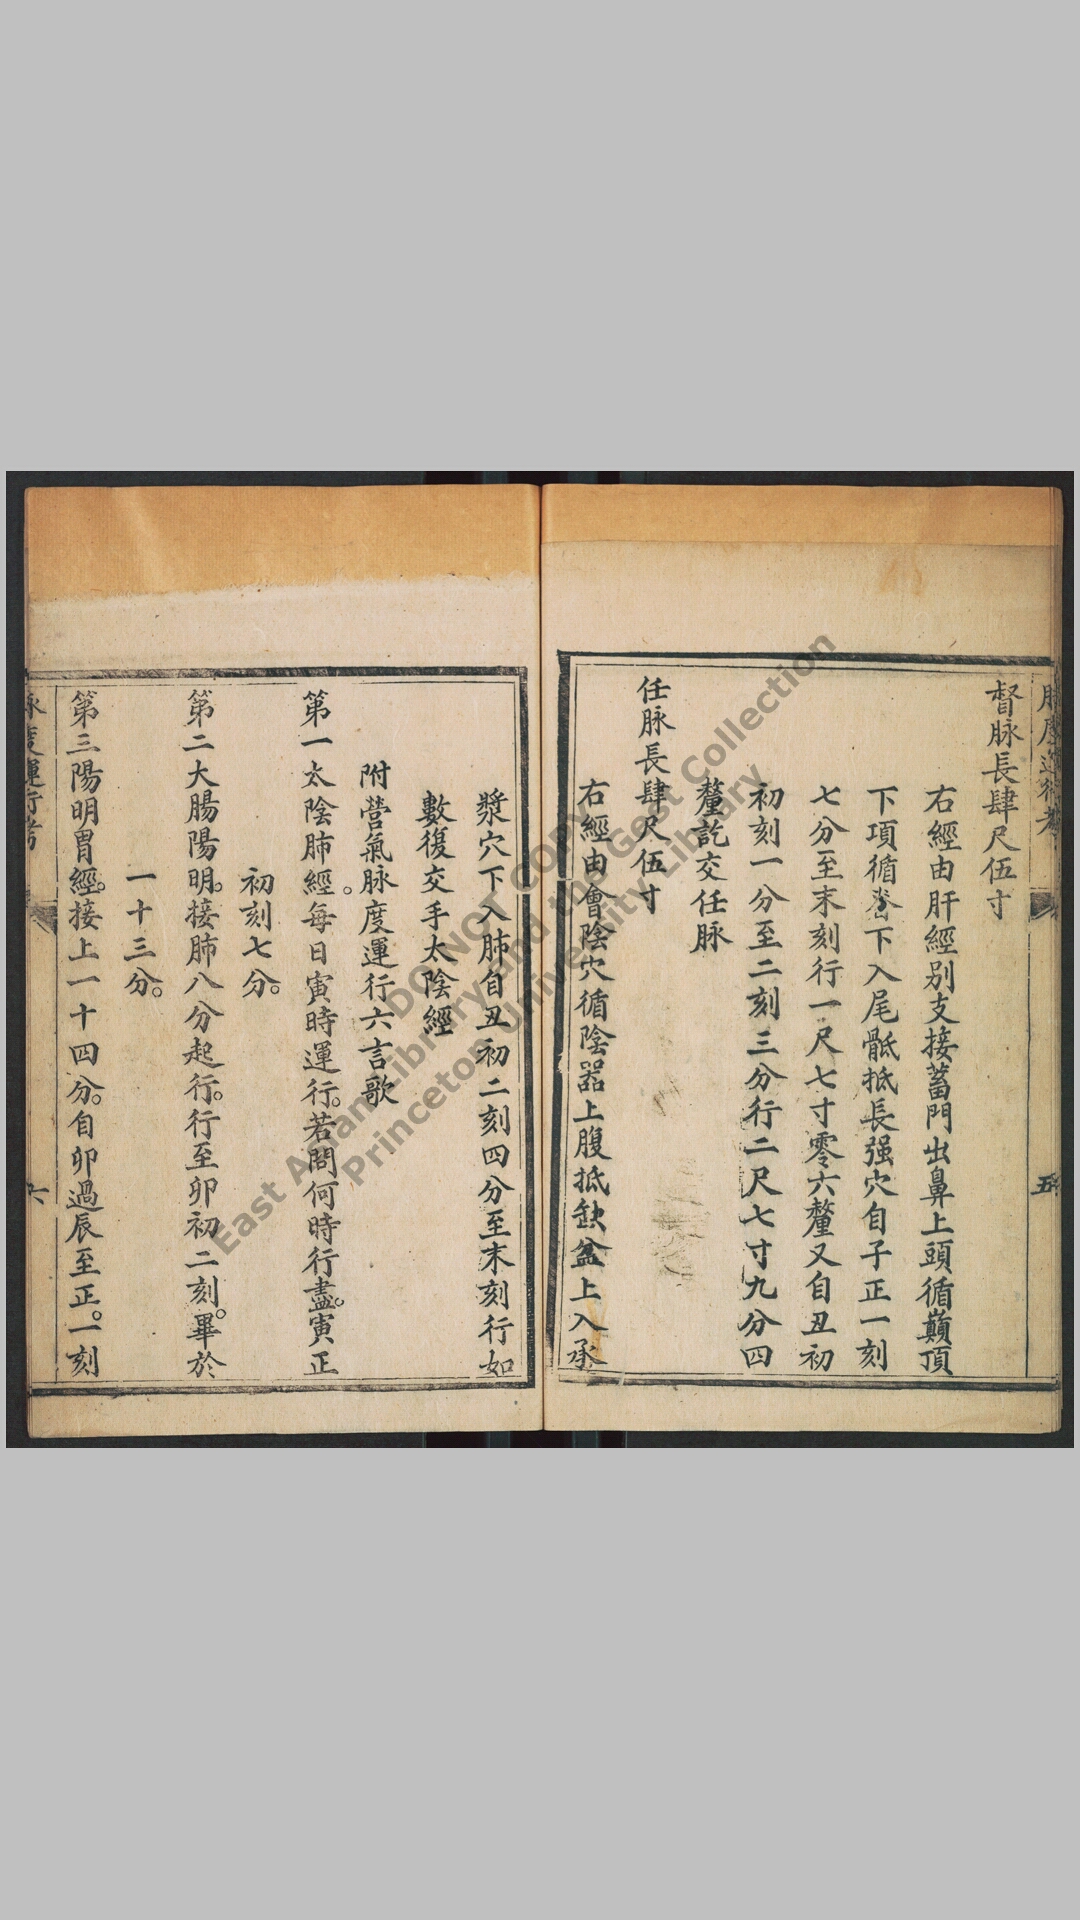 脉度運行考
五
督脉長肆尺伍寸
右經由肝經別支接蓄門出鼻上頭循巔頂
下項循脊下入尾骶抵長强穴自子正一刻
七分至末刻行一尺七寸零六釐又自丑初
初刻一分至二刻三分行二尺七寸九分四
釐訖交任脉
任脉長肆尺伍寸
右經由會陰穴循陰器上腹抵缺盆上入承
漿穴下入肺自丑初二刻四分至末刻行如
數復交手太陰經
附營氣脉度運行六言歌
第一太陰肺經。每日寅時運行。若問何時行盡。寅正
初刻七分。
第二大腸陽明。接肺八分起行。行至卯初二刻。畢於
一十三分。
第三陽明胃經。接上一十四分。自卯過辰至正。一刻
脉度運行考
六
DO NOT COPY
East Asian Library and the Gest Collection
Princeton University Library